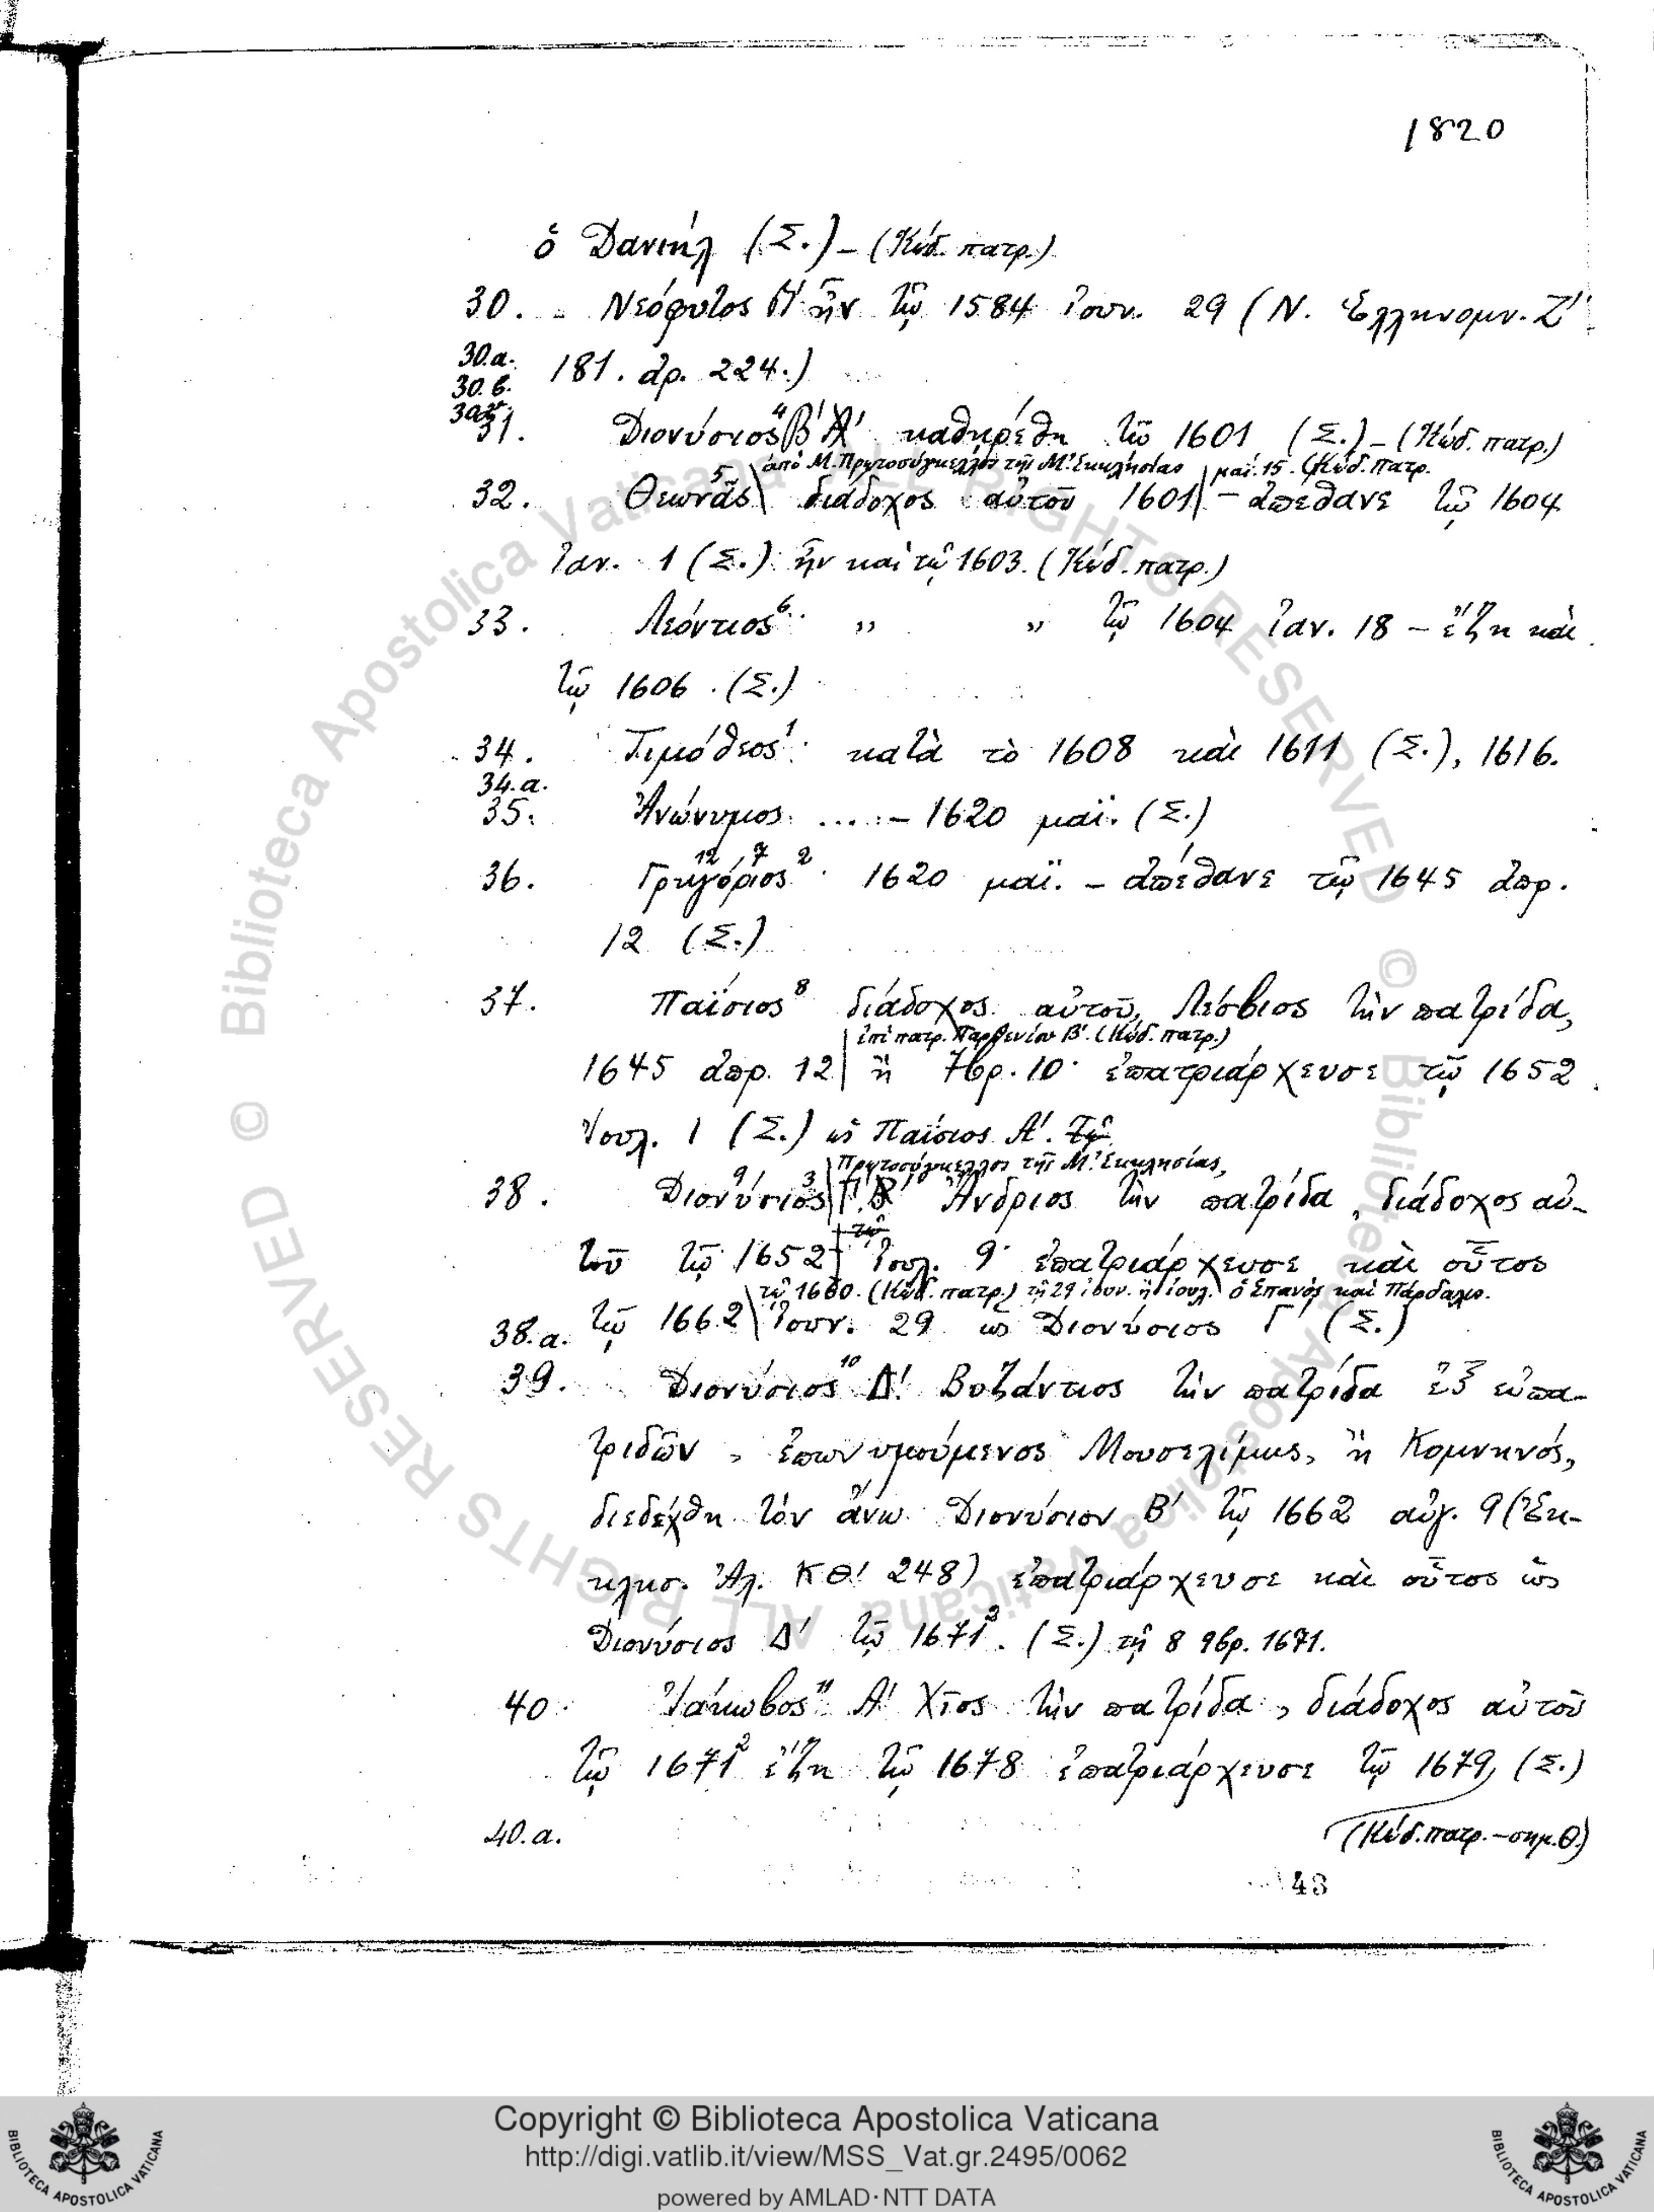 1820
ὁ Δανιήλ (Σ.) – (Κώδ. πατρ.)
30. – Νεόφυτος ἦν τῷ 1584 ἰουν. 29 (Ν. Ἑλληνομν. Ζ'
30.α. 181. ἀρ. 224.)
30.β.
31. Διονύσιος⁴ Β' Α' καθῃρέθη τῷ 1601 (Σ.) – (Κώδ. πατρ.)
ἀπὸ Μ. Πρωτοσύγκελλος τῆς Μ. Ἐκκλησίας | μαΐ. 15. (Κώδ. πατρ.
32. Θεωνᾶς⁵ διάδοχος αὐτοῦ 1601 – ἀπέθανε τῷ 1604
Ἰαν. 1 (Σ.) ἦν καὶ τῷ 1603. (Κώδ. πατρ.)
33. Λεόντιος⁶ „ „ τῷ 1604 Ἰαν. 18 – ἔζη καὶ
τῷ 1606. (Σ.)
34. Τιμόθεος¹· κατὰ τὸ 1608 καὶ 1611 (Σ.), 1616.
34.α.
35. Ἀνώνυμος .... – 1620 μαΐ. (Σ.)
12 7 2
36. Γρηγόριος· 1620 μαΐ. – ἀπέθανε τῷ 1645 ἀπρ.
12 (Σ.)
37. Παΐσιος⁸ διάδοχος αὐτοῦ, Λέσβιος τὴν πατρίδα,
ἐπὶ πατρ. Παρθενίου Β'. (Κώδ. πατρ.)
1645 ἀπρ. 12 | ἢ 7βρ. 10· ἐπατριάρχευσε τῷ 1652
Ἰουλ. 1 (Σ.) ὡς Παΐσιος Α'. τῷ
Πρωτοσύγκελλος τῆς Μ. Ἐκκλησίας,
38. Διονύσιος⁹ ³ Γ'. Β' Ἄνδριος τὴν πατρίδα, διάδοχος αὐ-
τοῦ τῷ 1652 Ἰουλ. 9· ἐπατριάρχευσε καὶ οὗτος
τῷ 1660. (Κώδ. πατρ.) τῇ 29 ἰουν. ἢ ἰουλ. ὁ Σπανὸς καὶ Πάρδαλις.
38.α. τῷ 1662 Ἰουν. 29 ὡς Διονύσιος Γ' (Σ.)
39. Διονύσιος¹⁰ Δ'. Βυζάντιος τὴν πατρίδα ἐξ εὐπα-
τριδῶν, ἐπωνυμούμενος Μουσελίμης, ἢ Κομνηνός,
διεδέχθη τὸν ἄνω Διονύσιον Β' τῷ 1662 αὐγ. 9 (Ἐκ-
κλησ. Ἀλ. ΚΘ' 248) ἐπατριάρχευσε καὶ οὗτος ὡς
Διονύσιος Δ' τῷ 1671². (Σ.) τῇ 8 9βρ. 1671.
40. Ἰάκωβος¹¹ Α' Χῖος τὴν πατρίδα, διάδοχος αὐτοῦ
τῷ 1671² ἔζη τῷ 1678 ἐπατριάρχευσε τῷ 1679, (Σ.)
40.α. (Κώδ. πατρ. – σημ. Θ.)
43
© Biblioteca Apostolica Vaticana ALL RIGHTS RESERVED © Biblioteca Apostolica Vaticana ALL RIGHTS RESERVED
Copyright © Biblioteca Apostolica Vaticana
http://digi.vatlib.it/view/MSS_Vat.gr.2495/0062
powered by AMLAD·NTT DATA
BIBLIOTECA APOSTOLICA VATICANA
BIBLIOTECA APOSTOLICA VATICANA